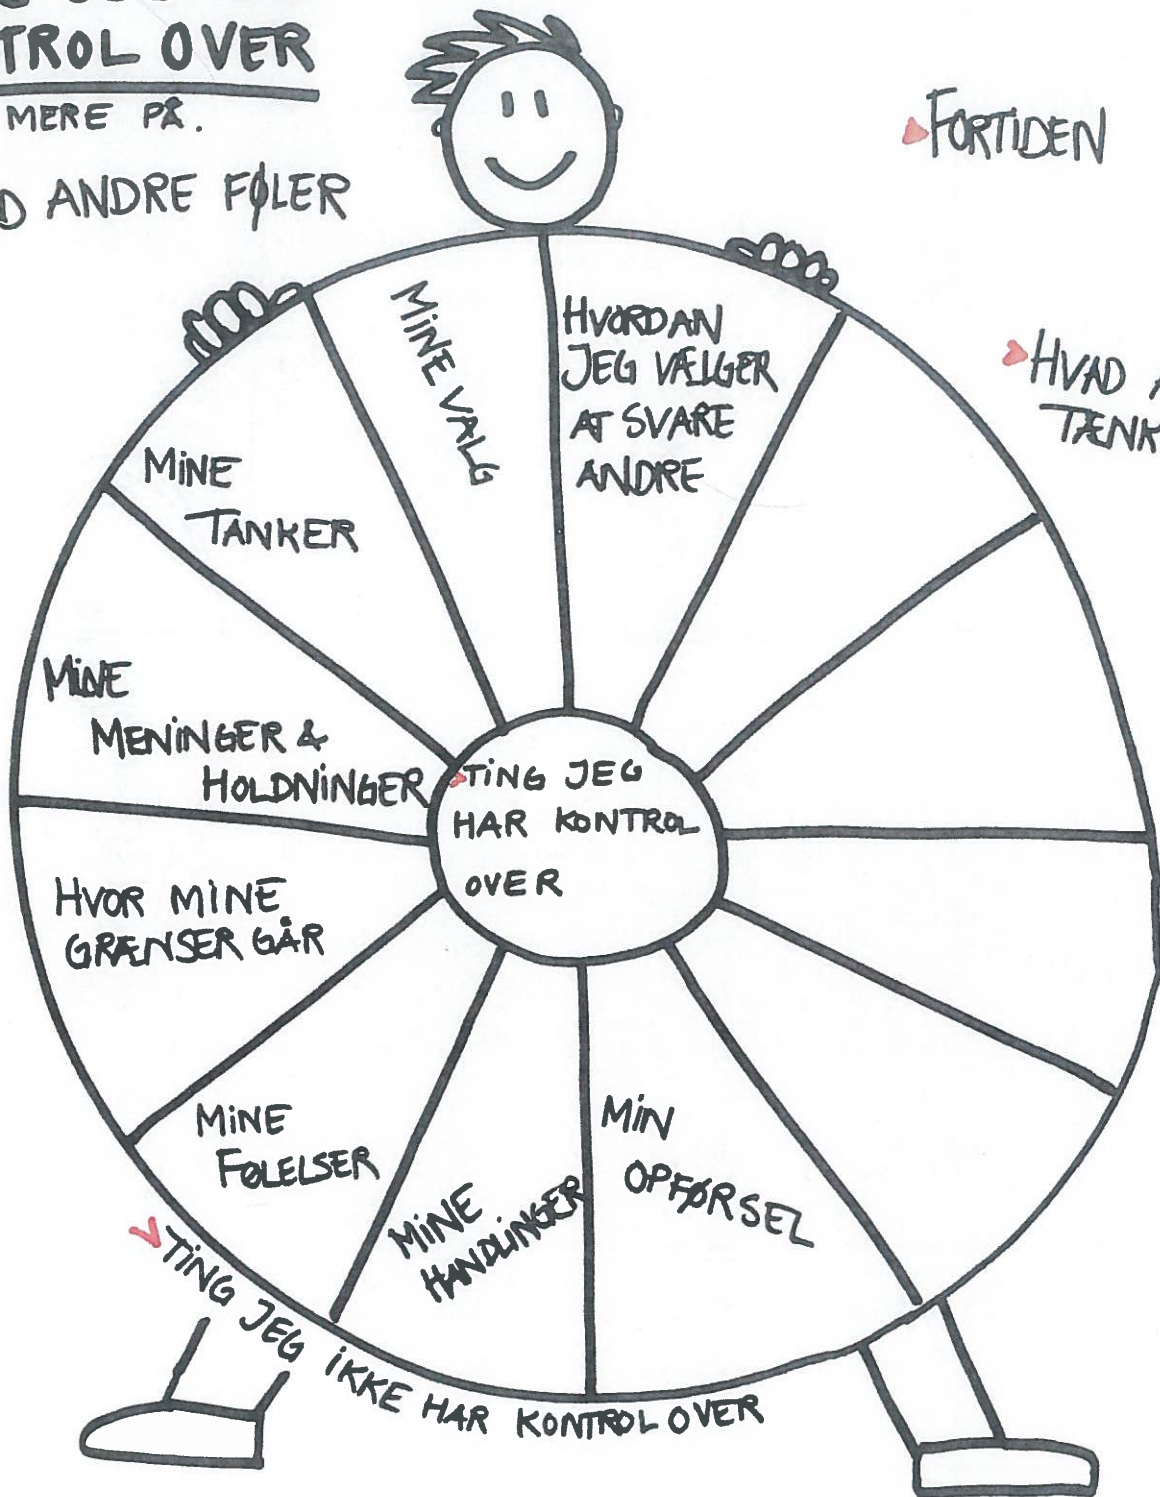 TROL OVER
MERE PÅ.
ANDRE FØLER
FORTIDEN
HVAD
MINE VALG
HVORDAN
JEG VÆLGER
AT SVARE
ANDRE
MINE
TANKER
MINE
MENINGER &
HOLDNINGER
TING JEG
HAR KONTROL
OVER
HVOR MINE
GRÆNSER GÅR
MINE
FØLELSER
MINE
HANDLINGER
MIN
OPFØRSEL
TING JEG IKKE HAR KONTROL OVER